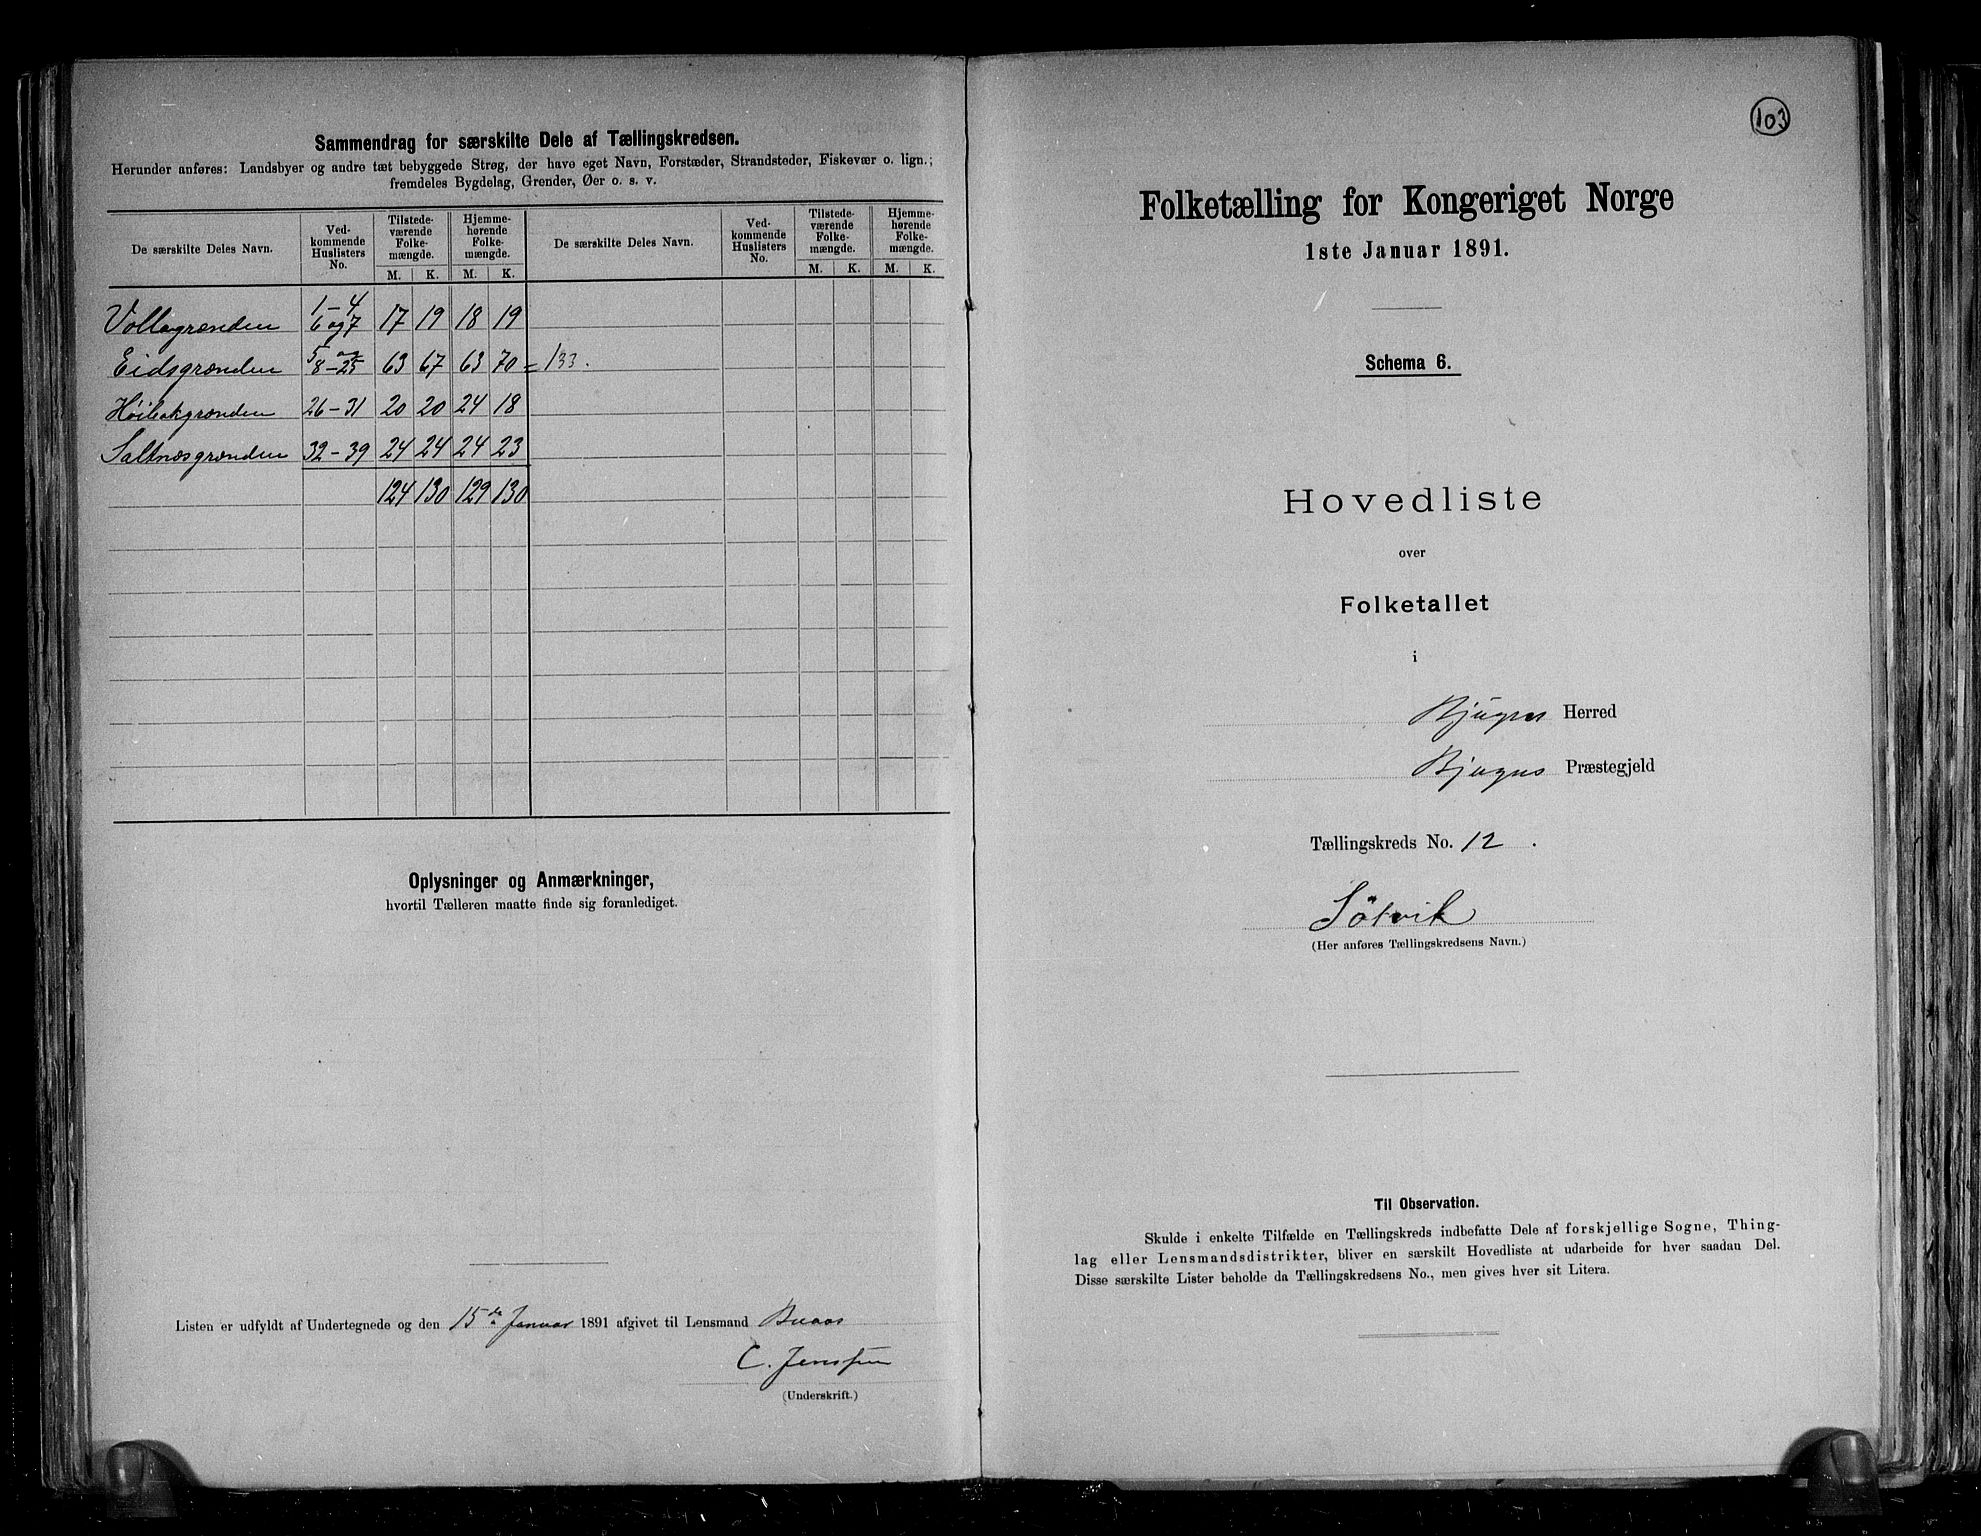 Sammendrag for særskilte Dele af Tællingskredsen.
Herunder anføres: Landsbyer og andre tæt bebyggede Strøg, der have eget Navn, Forstæder, Strandsteder, Fiskevær o. lign.;
fremdeles Bygdelag, Grender, Øer o. s. v.
De særskilte Deles Navn. Ved-kommende Huslisters No. Tilstede-værende Folke-mængde. Hjemme-hørende Folke-mængde. De særskilte Deles Navn. Ved-kommende Huslisters No. Tilstede-værende Folke-mængde. Hjemme-hørende Folke-mængde.
M. K. M. K. M. K. M. K.
Vollagrænden 1-4 6 og 7 17 19 18 19
Eidsgrænden 5 og 8-25 63 67 63 70 = 133.
Høibakgrænden 26-31 20 20 24 18
Saltnæsgrænden 32-39 24 24 24 23
124 130 129 130
Oplysninger og Anmærkninger,
hvortil Tælleren maatte finde sig foranlediget.
Listen er udfyldt af Undertegnede og den 15de Januar 1891 afgivet til Lensmand Buaas
C. Jenssen
(Underskrift.)
103
Folketælling for Kongeriget Norge
1ste Januar 1891.
Schema 6.
Hovedliste
over
Folketallet
i
Bjugns Herred
Bjugns Præstegjeld
Tællingskreds No. 12.
Sölvik
(Her anføres Tællingskredsens Navn.)
Til Observation.
Skulde i enkelte Tilfælde en Tællingskreds indbefatte Dele af forskjellige Sogne, Thing-
lag eller Lensmandsdistrikter, bliver en særskilt Hovedliste at udarbeide for hver saadan Del.
Disse særskilte Lister beholde da Tællingskredsens No., men gives hver sit Litera.